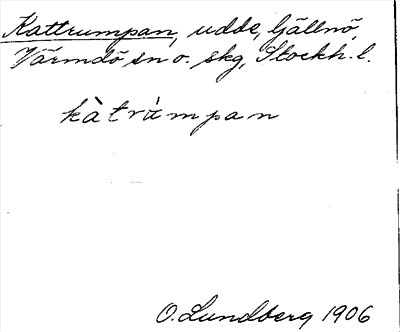 Kattrumpan, udde, Gällnö,
Värmdö sn o. skg, Stockh. l.
kàtrùmpan
O. Lundberg 1906